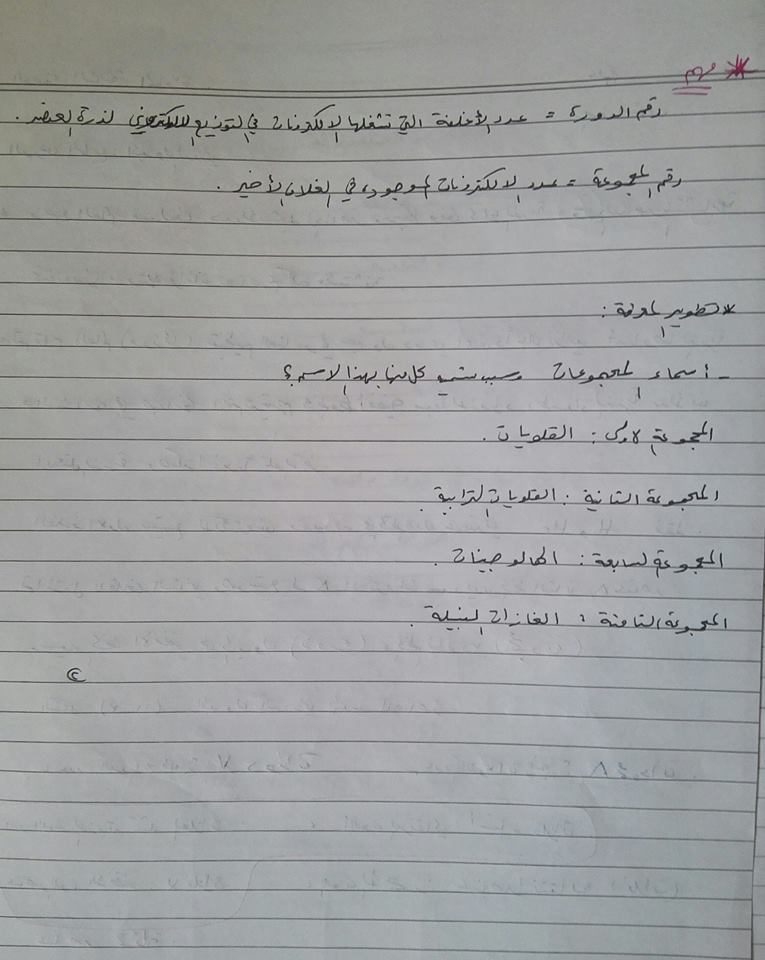 * مهم
رقم الدورة = عدد الأغلفة التي تشغلها الإلكترونات في التوزيع الإلكتروني لذرة العنصر .
رقم المجموعة = عدد الإلكترونات الموجودة في الغلاف الأخير .
* تطوير المعرفة :
- أسماء المجموعات وسبب تسمية كل منها بهذا الاسم ؟
المجموعة الأولى : القلويات .
المجموعة الثانية : القلويات الترابية .
المجموعة السابعة : الهالوجينات .
المجموعة الثامنة : الغازات النبيلة .